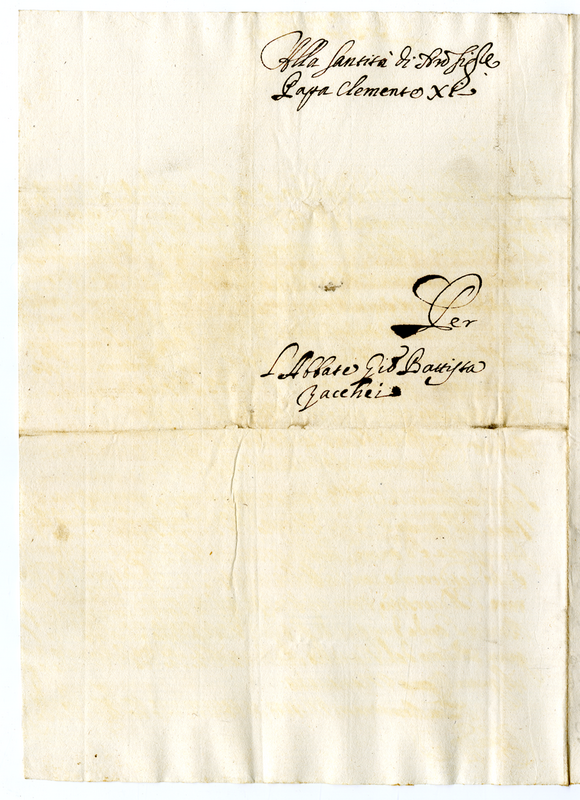 Alla Santità di Nro Sigre
Papa Clemente XI.
Per
L'Abbate Gio Battista
Zacchei